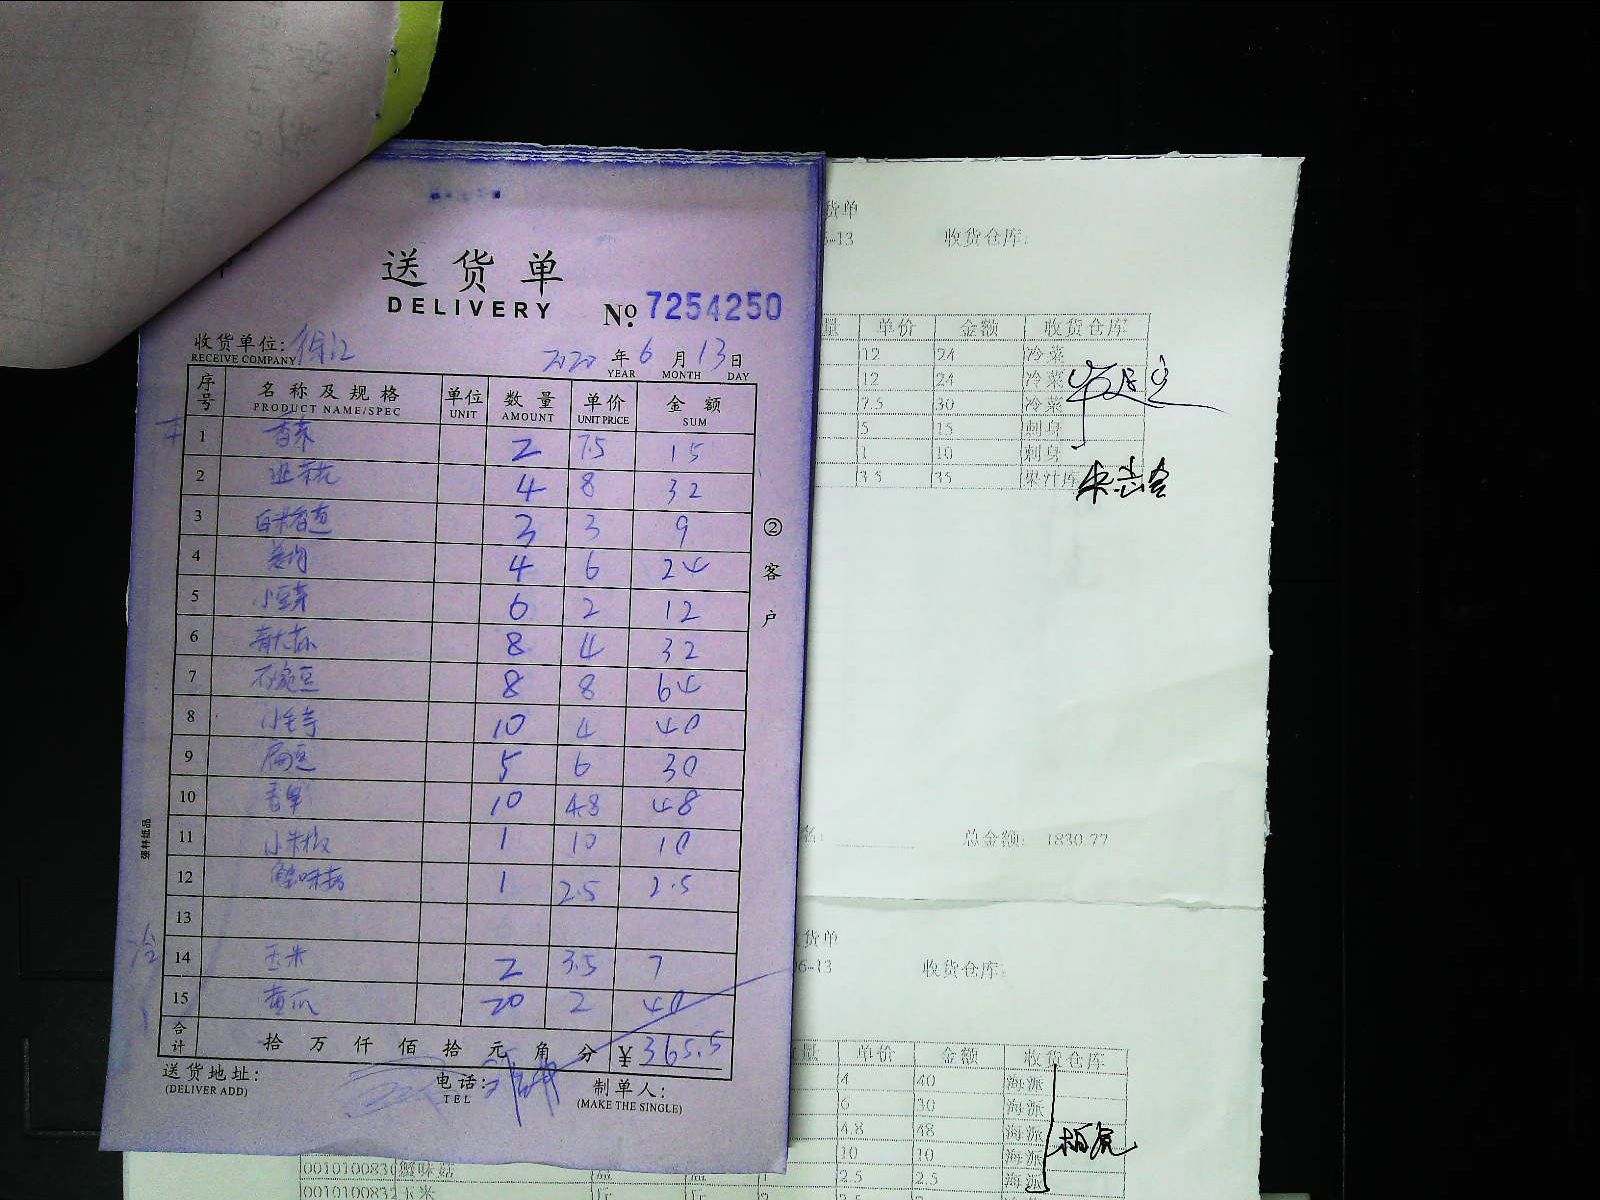 送货单
DELIVERY
No. 7254250
收货单位: 徐汇
RECEIVE COMPANY
2020 年 6 月 13 日
YEAR MONTH DAY
序号 名称及规格 单位 数量 单价 金额
PRODUCT NAME/SPEC UNIT AMOUNT UNIT PRICE SUM
1 香菜 2 7.5 15
2 4 8 32
3 3 3 9
4 姜肉 4 6 24
5 小豆芽 6 2 12
6 8 4 32
7 豌豆 8 8 64
8 10 4 40
9 扁豆 5 6 30
10 10 4.8 48
11 小米椒 1 10 10
12 蟹味菇 1 2.5 2.5
13
冷
14 玉米 2 3.5 7
15 黄瓜 20 2 40
合计 拾 万 仟 佰 拾 元 角 分 ¥365.5
送货地址:
(DELIVER ADD)
电话:
TEL
制单人:
(MAKE THE SINGLE)
② 客户
强林纸品
货单
6-13 收货仓库:
量 单价 金额 收货仓库
12 24 冷菜
12 24 冷菜
7.5 30 冷菜
5 15 刺身
1 10 刺身
3.5 35 果汁库
名: 总金额: 1830.77
货单
06-13 收货仓库:
量 单价 金额 收货仓库
4 40 海派
6 30 海派
4.8 48 海派
10 10 海派
0010100830 蟹味菇 2.5 2.5 海派
0010100832 玉米 斤 斤